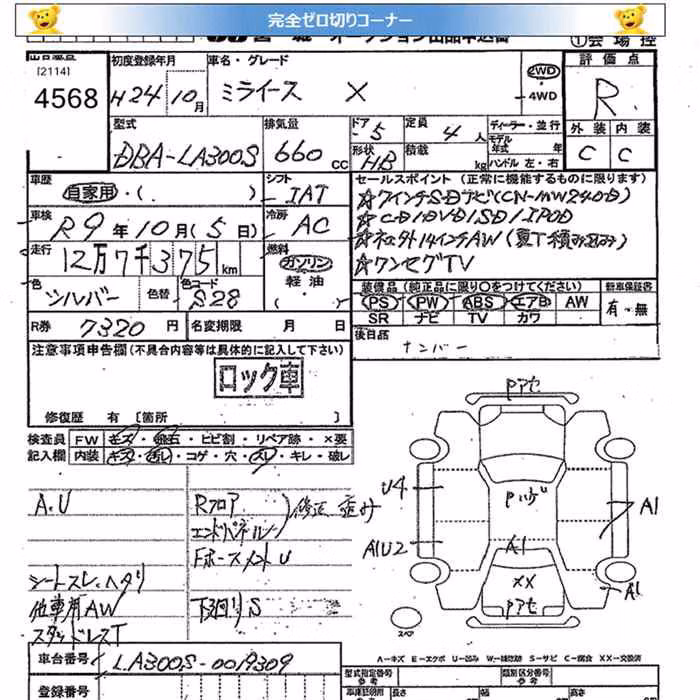 完全ゼロ切りコーナー
①会場控
[2114]
4568
初度登録年月
H24年10月
車名・グレード
ミライース X
2WD
・4WD
評価点
R
型式
DBA-LA300S
排気量
660 CC
ドア・5
定員 4人
ディーラー・並行
モデル年式 年
形状 HB
積載 kg
ハンドル 左・右
外装 内装
C C
車歴
自家用・( )
シフト
IAT
車検
R9年10月(5日)
冷房
AC
走行
12万7千375km
燃料
ガソリン
軽油
( )
色
シルバー
色替
色コード
S28
R券 7320円
名変期限 月 日
セールスポイント (正常に機能するものに限ります)
☆7インチSDナビ(CN-MW240D)
☆CD/DVD/SD/IPOD
☆社外14インチAW(夏T積み込み)
☆ワンセグTV
装備品 (純正品に限り○をつけてください)
新車保証書
PS PW ABS エアB AW
SR ナビ TV カワ
有・無
後日品
ナンバー
注意事項申告欄(不具合内容等は具体的に記入して下さい)
ロック車
修復歴 有 [箇所 ]
検査員記入欄
FW キズ・飛石・ヒビ割・リペア跡・×要
内装 キズ・汚レ・コゲ・穴・スレ・キレ・破レ
A.U
シートスレ、ヘタリ
他車用AW
スタッドレスT
Rフロア
エンドパネル
修正 歪み
U
下回りS
Pアセ
U4
A1U2
A1
A1
××
Pアセ
A1
スペア
A-キズ E-エクボ U-凹み W-補修跡 S-サビ C-腐食 XX-交換済
車台番号 LA300S-0019309
登録番号
型式指定番号
類別区分番号
車庫証明用参考
長さ
幅
高さ